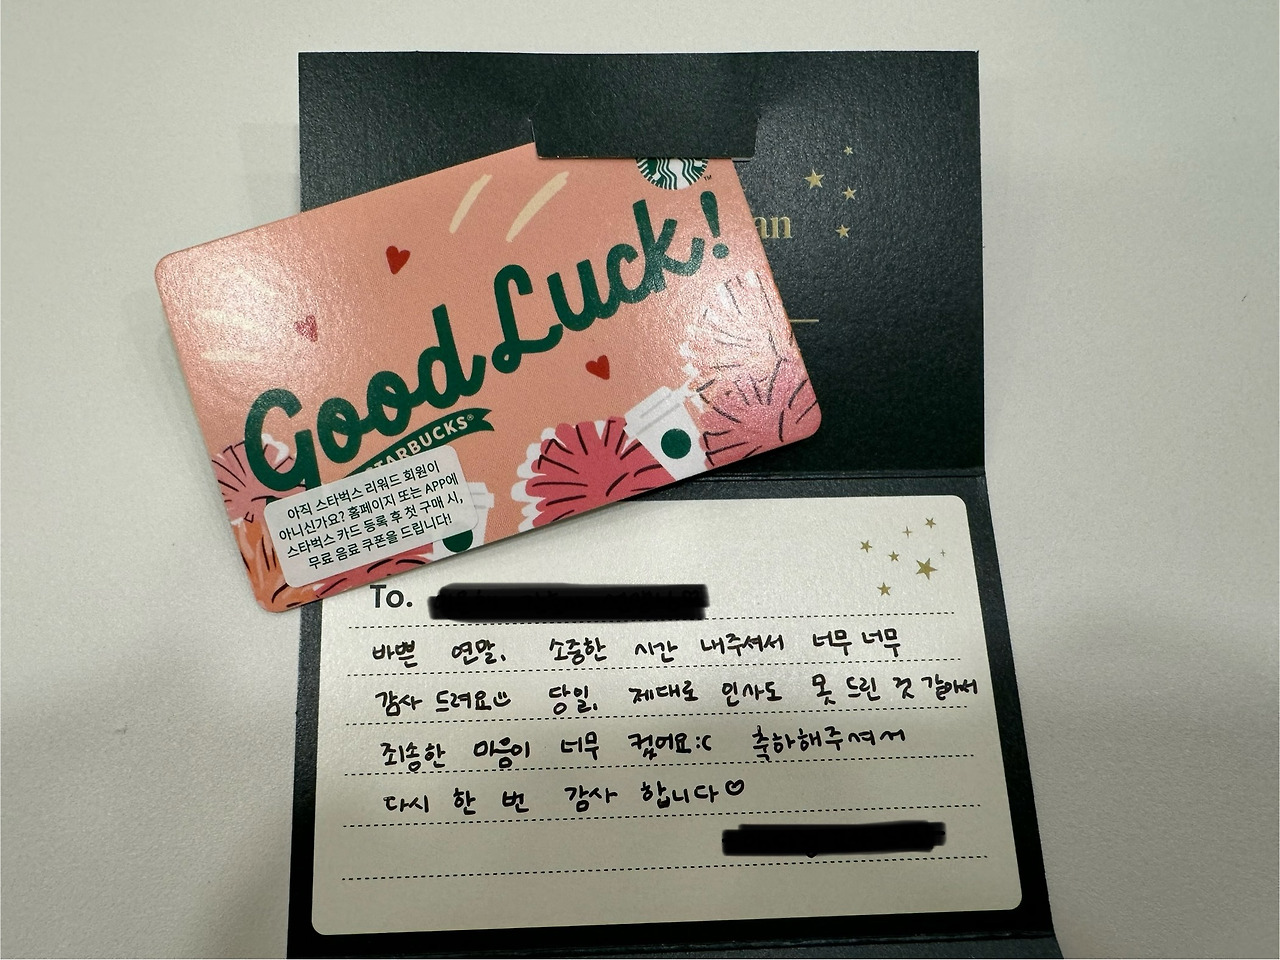 an
Good Luck!
STARBUCKS®
아직 스타벅스 리워드 회원이
아니신가요? 홈페이지 또는 APP에
스타벅스 카드 등록 후 첫 구매 시,
무료 음료 쿠폰을 드립니다!
To.
바쁜 연말, 소중한 시간 내주셔서 너무 너무
감사 드려요 당일, 제대로 인사도 못 드린 것 같아서
죄송한 마음이 너무 컸어요:( 축하해주셔서
다시 한 번 감사 합니다♡